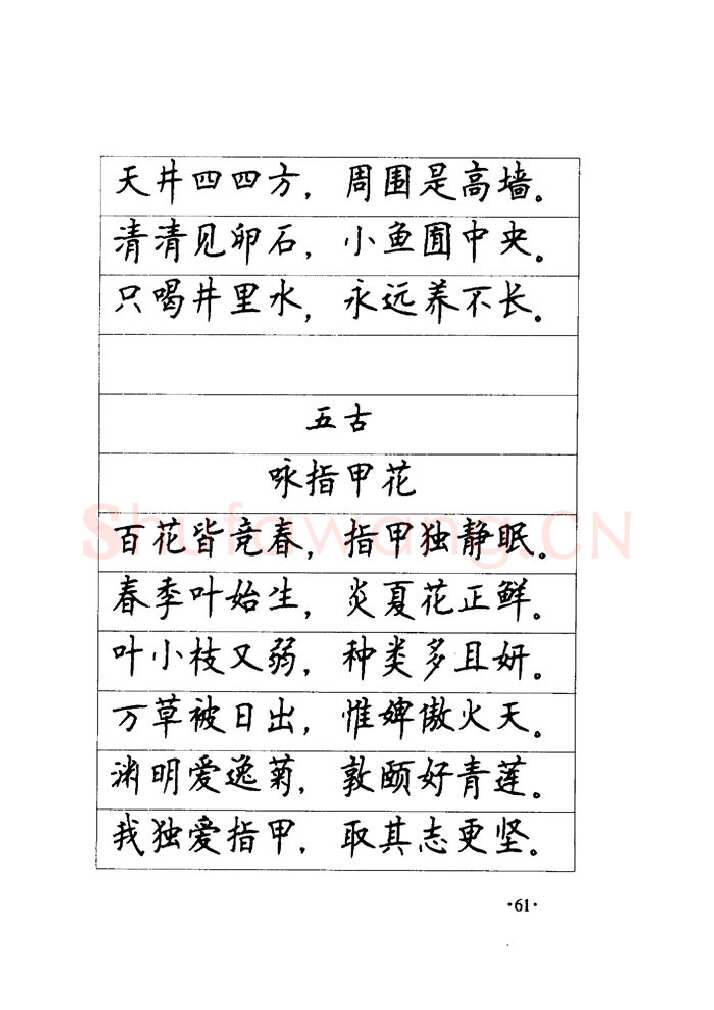 天井四四方，周围是高墙。
清清见卵石，小鱼囿中央。
只喝井里水，永远养不长。
五古
咏指甲花
百花皆竞春，指甲独静眠。
春季叶始生，炎夏花正鲜。
叶小枝又弱，种类多且妍。
万草被日出，惟婢傲火天。
渊明爱逸菊，敦颐好青莲。
我独爱指甲，取其志更坚。
Shufawang.CN
·61·